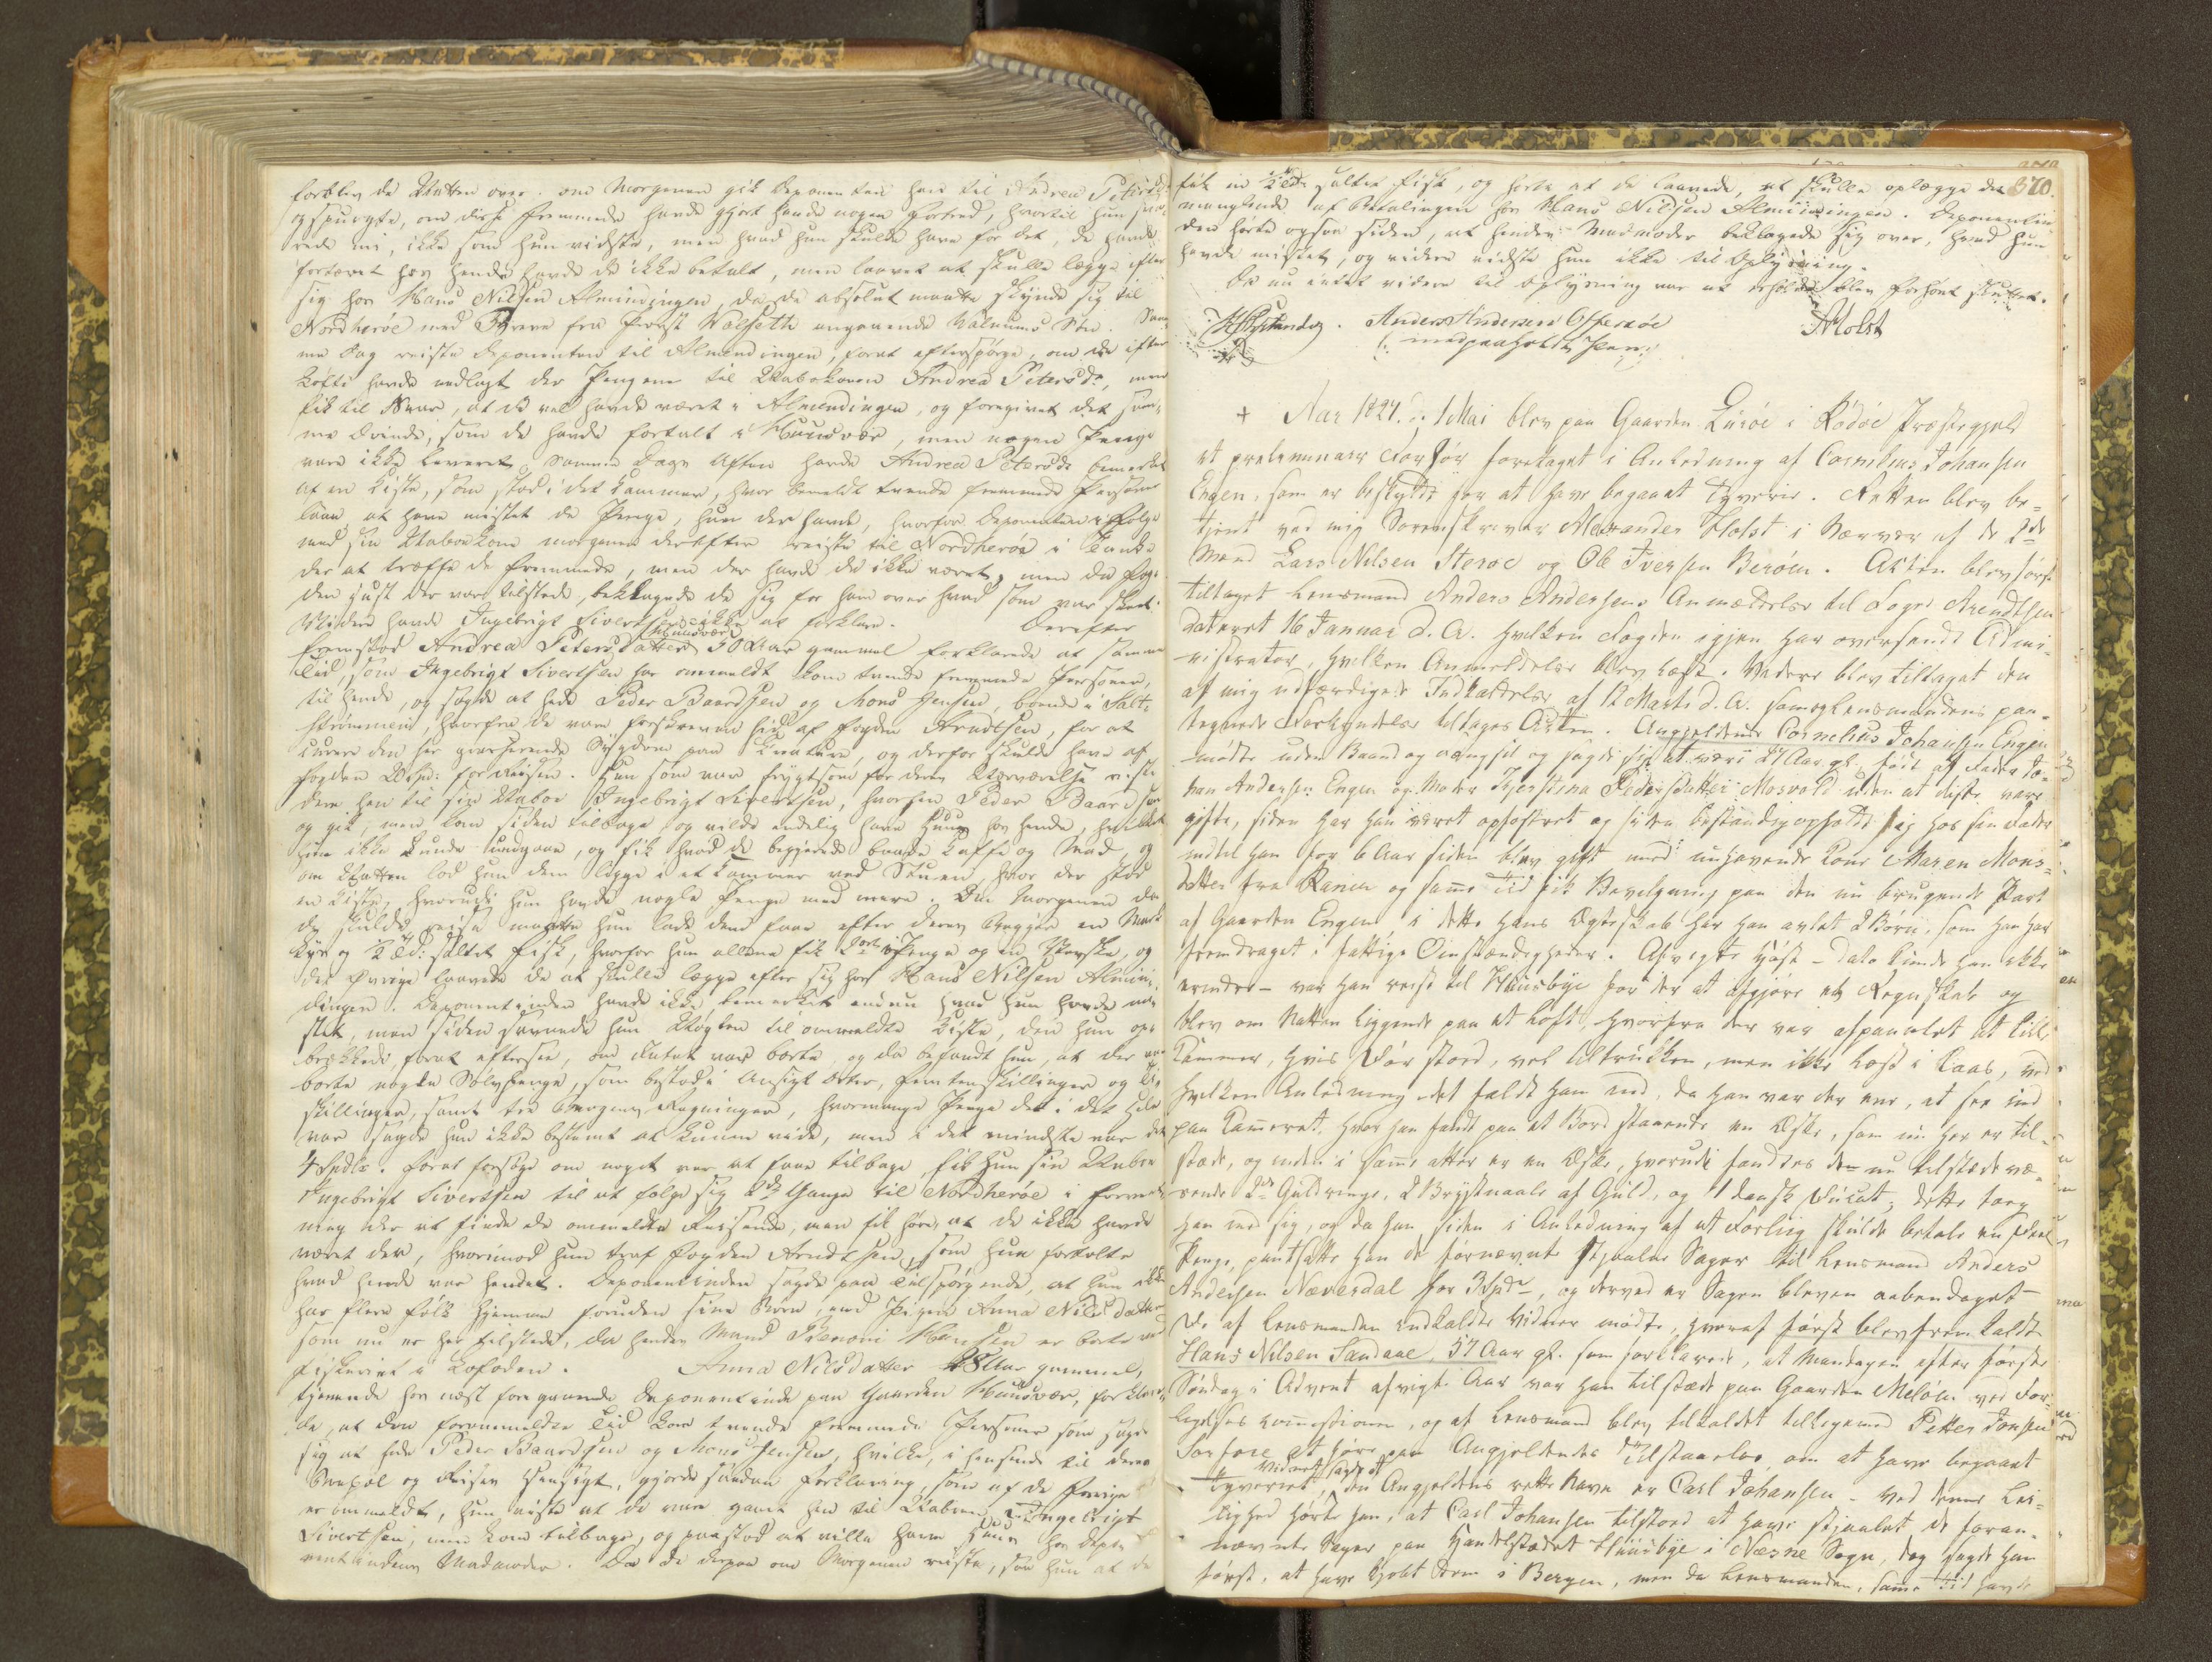 forblev de Natten over. om Morgenen gik Deponenten hen til Andrea Petersd.
og spurgte, om disse fremmede havde gjort hende nogen Fortræd, hvortil hun sva-
rede nei, ikke som hun vidste, men hvad hun skulde have for det, de havde
fortæret hos hende havde de ikke betalt, men lovet at skulle lægge efter
sig hos Hans Nilsen Almindingen, da de absolut maatte skynde sig til
Nordherøe med Breve fra Provst Wolseth angaaende Søn. Sam-
me Dag reiste Deponenten til Almindingen, forat efterspørge, om de efter
Løfte havde nedlagt der Pengene til Nabokonen Andrea Petersdr, men
fik til Svar, at de vel havde været i Almindingen, og foregivet det sam-
me Ærinde, som de havde fortalt i Huusvær, men nogen Penge
vare ikke leveret. Samme Dags Aften havde Andrea Petersdr bemærket
af en Kiste, som stod i det Kammer, hvor bemeldte tvende fremmede Personer
laae, at have mistet de Penge, hun der havde, hvorfor Deponenten i Følge
med sin Nabokone Morgenen derefter reiste til Nordherøe i Tanke
der at træffe de fremmede, men der havde de ikke været, men da Fog-
den just der var tilstede, beklagede de sig for ham over hvad som var skeet.
Videre havde Ingebrigt Sivertsen ikke at forklare. Derefter
fremstod Andrea Petersdatter Huusvær 50 Aar gammel forklarede at samme
Tid, som Ingebrigt Sivertsen har ommeldt kom tvende fremmede Personer,
til hende, og sagde at hede Peder Baardsen og Mons Jensen, boende i Salt-
strømmen, hvorfra de vare forskrevne hid af Fogden Arndtsen, for at
curere den her grasserende Sygdom paa Creature, og derfor skulde have af
Fogden 20 Spd: for Reisen. Hun som var frygtsom for deres Nærværelse viiste
dem hen til sin Naboe Ingebrigt Sivertsen, hvorhen Peder Baardsen
og gik, men kom siden tilbage og vilde endelig have Huus hos hende, hvilket
hun ikke kunde undgaae, og fik hvad de begjerede baade Kaffe og Mad, og
om Natten lod hun dem ligge i et Kammer ved Stuen, hvor der stod
en Kiste, hvorudi hun havde nogle Penge med mere. Om Morgenen da
de skulde reise maatte hun lade dem faae efter deres Begjær en Mark
og 2 salted Fisk, hvorfor hun allene fik 2 ort i Penge og en , og
det øvrige lovede de at skulle lægge efter sig hos Hans Nilsen Almin-
dingen. Deponentinden havde ikke bemærket endnu hvad hun havde mi-
stet, men siden savnede hun Nøglen til ommeldte Kiste, den hun op-
brækkede, forat eftersee, om Intet var borte, og da befandt hun, at der var
borte nogle Sølvpenge, som bestode i Ansigt orter, femtenskillinger og Ti-
skillinger, samt tre , hvormange Penge det i det hele
var sagde hun ikke bestemt at kunne vide, men i det mindste var det
4 Spdlr. Forat forsøge om noget var at faae tilbage, fik hun sin Naboe
Ingebrigt Sivertsen til at følge sig 2de Gange til Nordherøe i Formee-
ning der at finde de ommeldte Reisende, men fik høre, at de ikke havde
været der, hvorimod hun traf Fogden Arndtsen, som hun fortalte
hvad hende var hendet. Deponentinden sagde paa Tilspørgende, at hun ikke
har flere Folk hjemme foruden sine Børn, end Pigen Anna Nilsdatter
som nu er her tilstede, da hendes Mand Benoni Hansen er borte ved
Fiskeriet i Lofoden. Anna Nilsdatter 28 Aar gammel,
tjenende hos næst foregaaende Deponentinde paa Gaarden Huusvær, forklare-
de, at den forommeldte Tid kom tvende fremmede Personer som sagde
sig at hede Peder Baardsen og Mons Jensen, hvilke, i henseende til deres
Bopæl og Reisens Hensigt, gjorde saadan Forklaring, som af de forrige
er ommeldt, hun viste at de vare gaaet hen til Naboen Ingebrigt
Sivertsen, men kom tilbage, og paastod at ville have Huus hos Depo-
nentindens Madmoder. Da de derpaa om Morgenen reiste, saa hun at de
fik en salted Fisk, og hørte at de lovede, at skulle oplægge det 370.
manglende af Betalingen hos Hans Nilsen Almindingen. Deponentin-
den hørte ogsaa siden, at hendes Madmoder beklagede sig over, hvad hun
havde mistet, og videre vidste hun ikke til Oplysning.
Da nu intet videre til Oplysning var at erholde blev Forhøret sluttet.
Anders Andersen Offersøe AHolst
med paaholden Pen
+ Aar 1824. d: 1 Mai blev paa Gaarden Lurøe i Rødøe Præstegjeld
et preleminair Forhør foretaget i Anledning af Cornelius Johansen
Engen, som er beskyldt for at have begaaet Tyverie. Retten blev be-
tjent ved mig Sorenskriver Alexander Holst i Nærvær af de 2de
Mænd Lars Nilsen Sterøe og Ole Iversen Berøen. Acten blev først
tiltaget Lensmand Anders Andersens Anmeldelse til Foged Arendtsen
dateret 16 Januar d. A. hvilken Fogden igjen har oversendt Admi-
nistrator, hvilken Anmeldelse blev læst. Videre blev tiltaget den
af mig udfærdigede Indkaldelse af 12 Marts d. A. samt Lensmandens paa-
tegnede Forkyndelse tillages Acten. Angjeldende Cornelius Johansen Engen
mødte uden Baand og tvangfri og sagde sig at være 27 Aar gl. født af Fader Jo-
han Andersen Engen og Moder Kjerstina Pedersdatter Mosvold uden at disse vare
gifte, siden har han været opfostret og siden bestandig opholdt sig hos sin Fader
indtil han for 6 Aar siden blev gift med nuhavende Kone Maren Mons-
datter fra Ranen og samme Tid fik Bevilgning paa den nu brugende Part
af Gaarden Engen, i dette hans Ægteskab har han avlet 2 Børn, som han har
fremdraget i fattige Omstændigheder. Afvigte Høst - Dato kunde han ikke
erindre - var han reist til Huusbye for der at afgjøre et Regnskab og
blev om Natten liggende paa et Loft, hvorfra der var afpanelet et lidet
Kammer, hvis Dør stod vel tiltrukken, men ikke lost i Laas, ved
hvilken Anledning det faldt ham ind, da han var der ene, at see ind
paa Kammeret, hvor han fandt paa et Bord staaende en Æske, som nu her er til-
stede, og inden i samme atter er en Æske, hvorudi fandtes de nu tilstede væ-
rende 2de Guldringe, 2 Brystnaale af Guld, og 1 dansk Ducat; dette tog
han med sig, og da han siden i Anledning af et Forlig skulde betale en Deel
Penge, pantsatte han de fornævnte stjaalne Sager til Lensmand Anders
Andersen Næverdal for 3 Spdr, og derved er Sagen bleven aabendaget -
De af Lensmanden indkaldte Vidner mødte, hvoraf først blev fremkaldt
Hans Nilsen Sandaae, 57 Aar gl. som forklarede, at Mandagen efter første
Søndag i Advent afvigte Aar var han tilstæde paa Gaarden Meløen ved For-
ligelses Commissionen, og af Lensmand blev tilkaldet tilligemed Petter Jonsen
Sørfore, at høre paa Angjeldendes Tilstaaelse, om at have begaaet
Tyveriet, Vidnet sagde at den Angjeldens rette Navn er Carl Johansen - Ved denne Lei-
lighed hørte han, at Carl Johansen tilstod at have stjaalet de foran-
nævnte Sager paa Handelstædet Huusbye i Næsne Sogn, dog sagde han
først, at have kjøbt dem i Bergen, men da Lensmanden, samme Tid havde